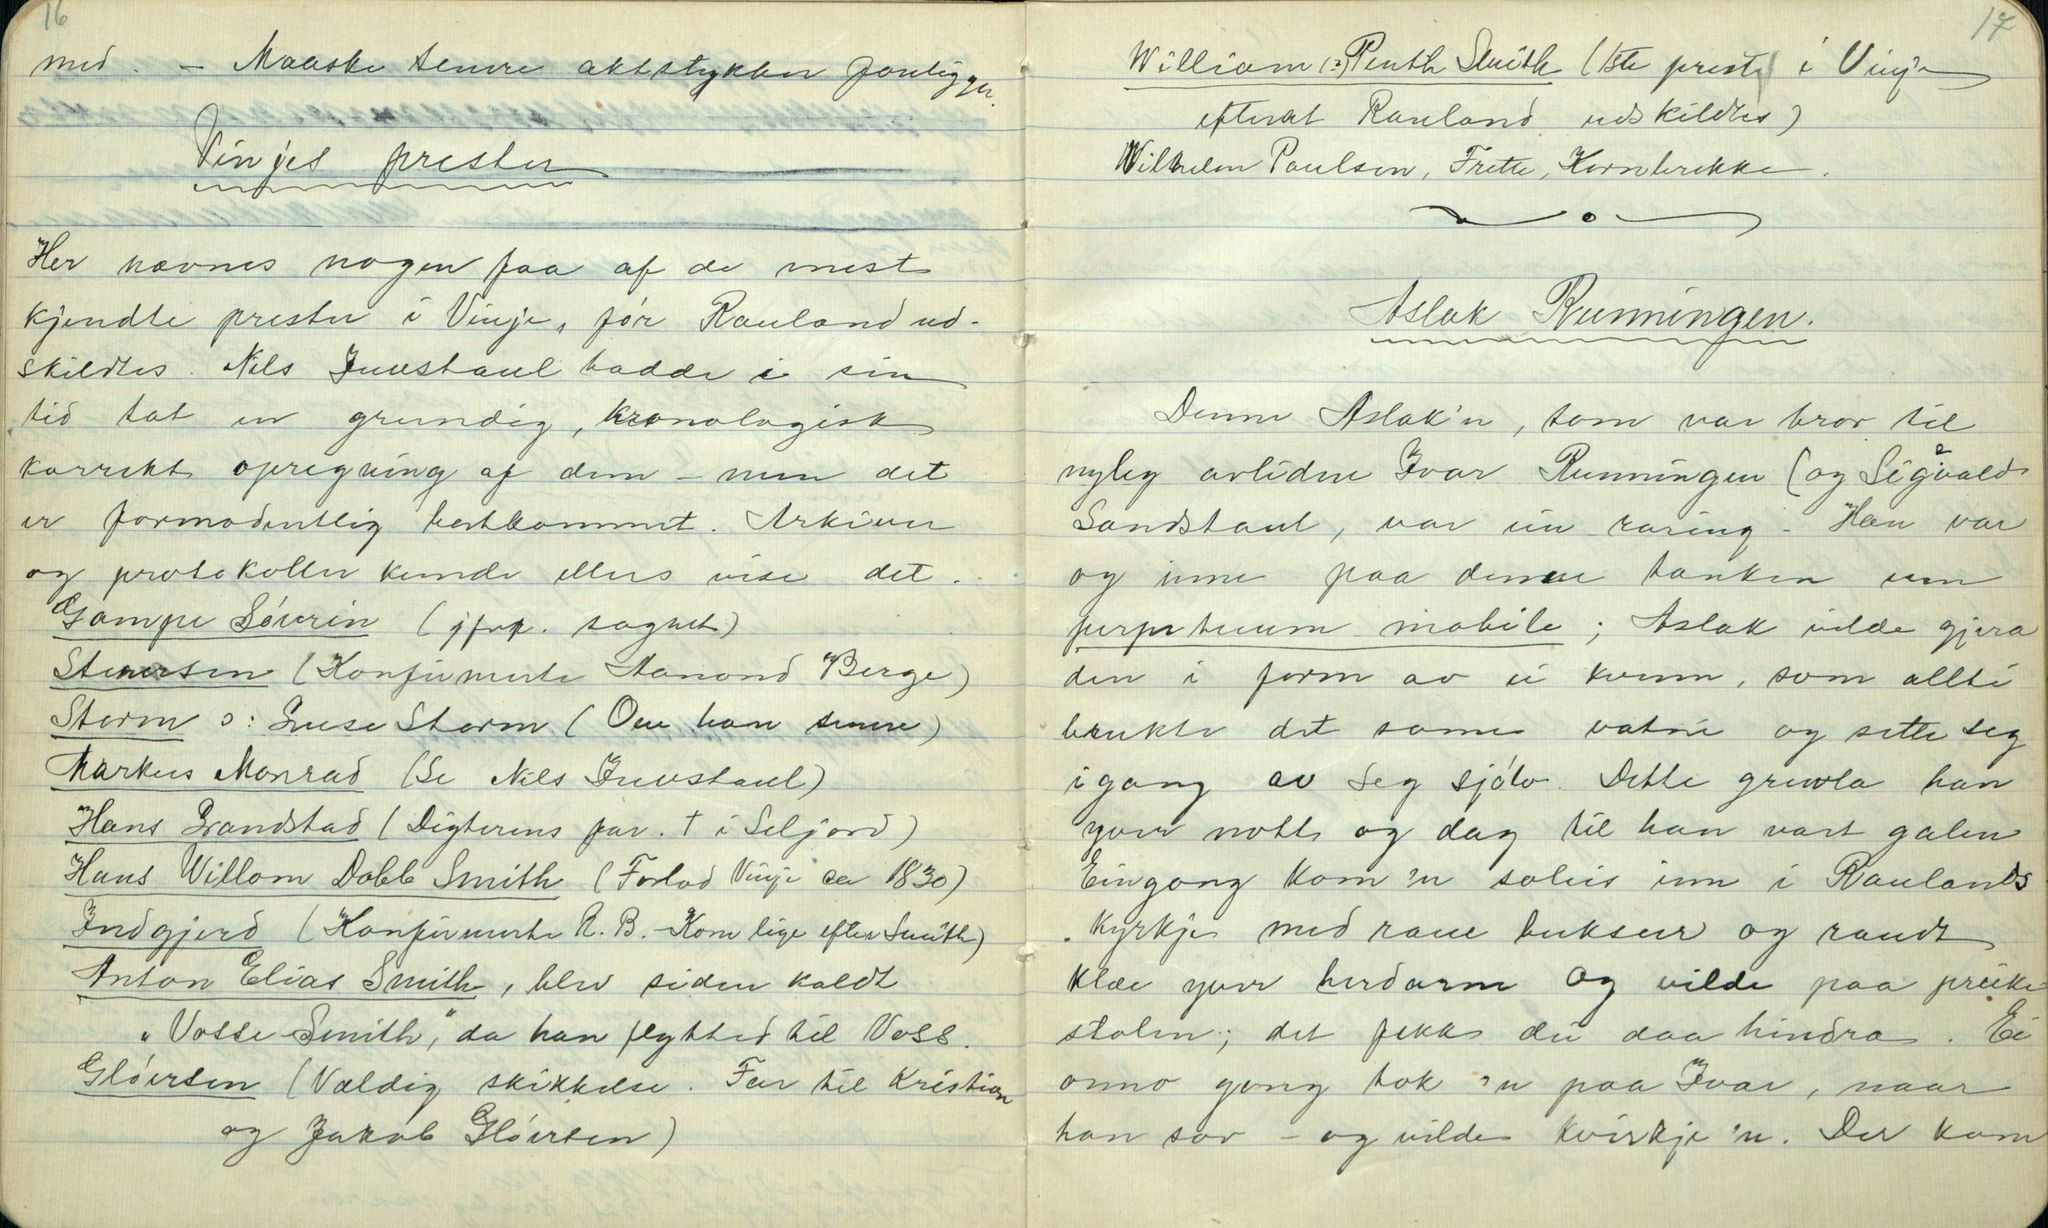 16
med. – Maaske senere aktstykker foreligger.
Vinjes prester
Her nævnes nogen faa af de mest
kjendte prester i Vinje, før Rauland ud-
skildtes. Nils Juvstaul hadde i sin
tid tat en grundig, kronologisk
korrekt opregning af dem – men det
er formodentlig bortkommet. Arkiver
og protokoller kunde ellers vise det.
Gampe Søvrin (jfr. sagnet)
Stenersen (Konfirmerte Aanond Berge)
Storm ɔ: Luse Storm (Om han senere)
Markus Monrad (Se Nils Juvstaul)
Hans Landstad (Digterens far. † i Seljord)
Hans Willom Dobb Smith (Forlod Vinje ca 1830)
Indgjerd (Konfirmerte R. B. – Kom lige efter Smith)
Anton Elias Smith, blev siden kaldt
"Vosse-Smith," da han flytted til Voss.
Gløersen (Vældig skikkelse. Far til Kristian
og Jakob Gløersen)
17
William (?) Smith (1ste prest i Vinje
efterat Rauland udskildtes)
Wilhelm Poulsen, Frette, Kornbrekke.
Aslak Runningen.
Denne Aslak'n, som var bror til
nyleg avlidne Ivar Runningen (og Sigvald
Sandstaul, var ein raring – Han var
og inne paa denne tanken um
perpetuum mobile; Aslak vilde gjera
den i form av ei kvenn, som allti
brukte det same vatne og sette seg
igang av seg sjølv. Dette gruvla han
yver nott og dag til han vart galen
Eingong kom 'n soleis inn i Raulands
kyrkje med raue bukser og raudt
klæe yver herdarne og vilde paa preike
stolen; det fekk dei daa hindra. Ei
onno gong tok 'n paa Ivar, naar
han sov – og vilde kvirkje 'n. Der kom